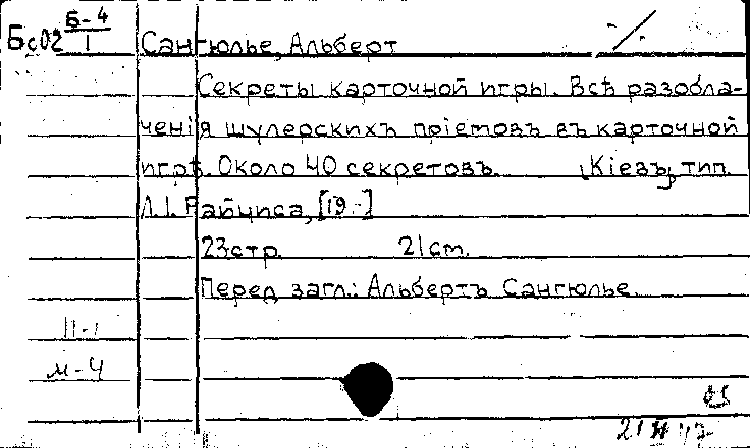 Бс02 Б-4/1 Сангюлье, Альберт
Секреты карточной игры. Всѣ разобла-
ченiя шулерскихъ прiемовъ въ карточной
игрѣ. Около 40 секретовъ. Кiевъ, тип.
Л.I. Райциса, [19--]
23стр. 21 см.
Перед загл.: Альбертъ Сангюлье.
II-1
м-4